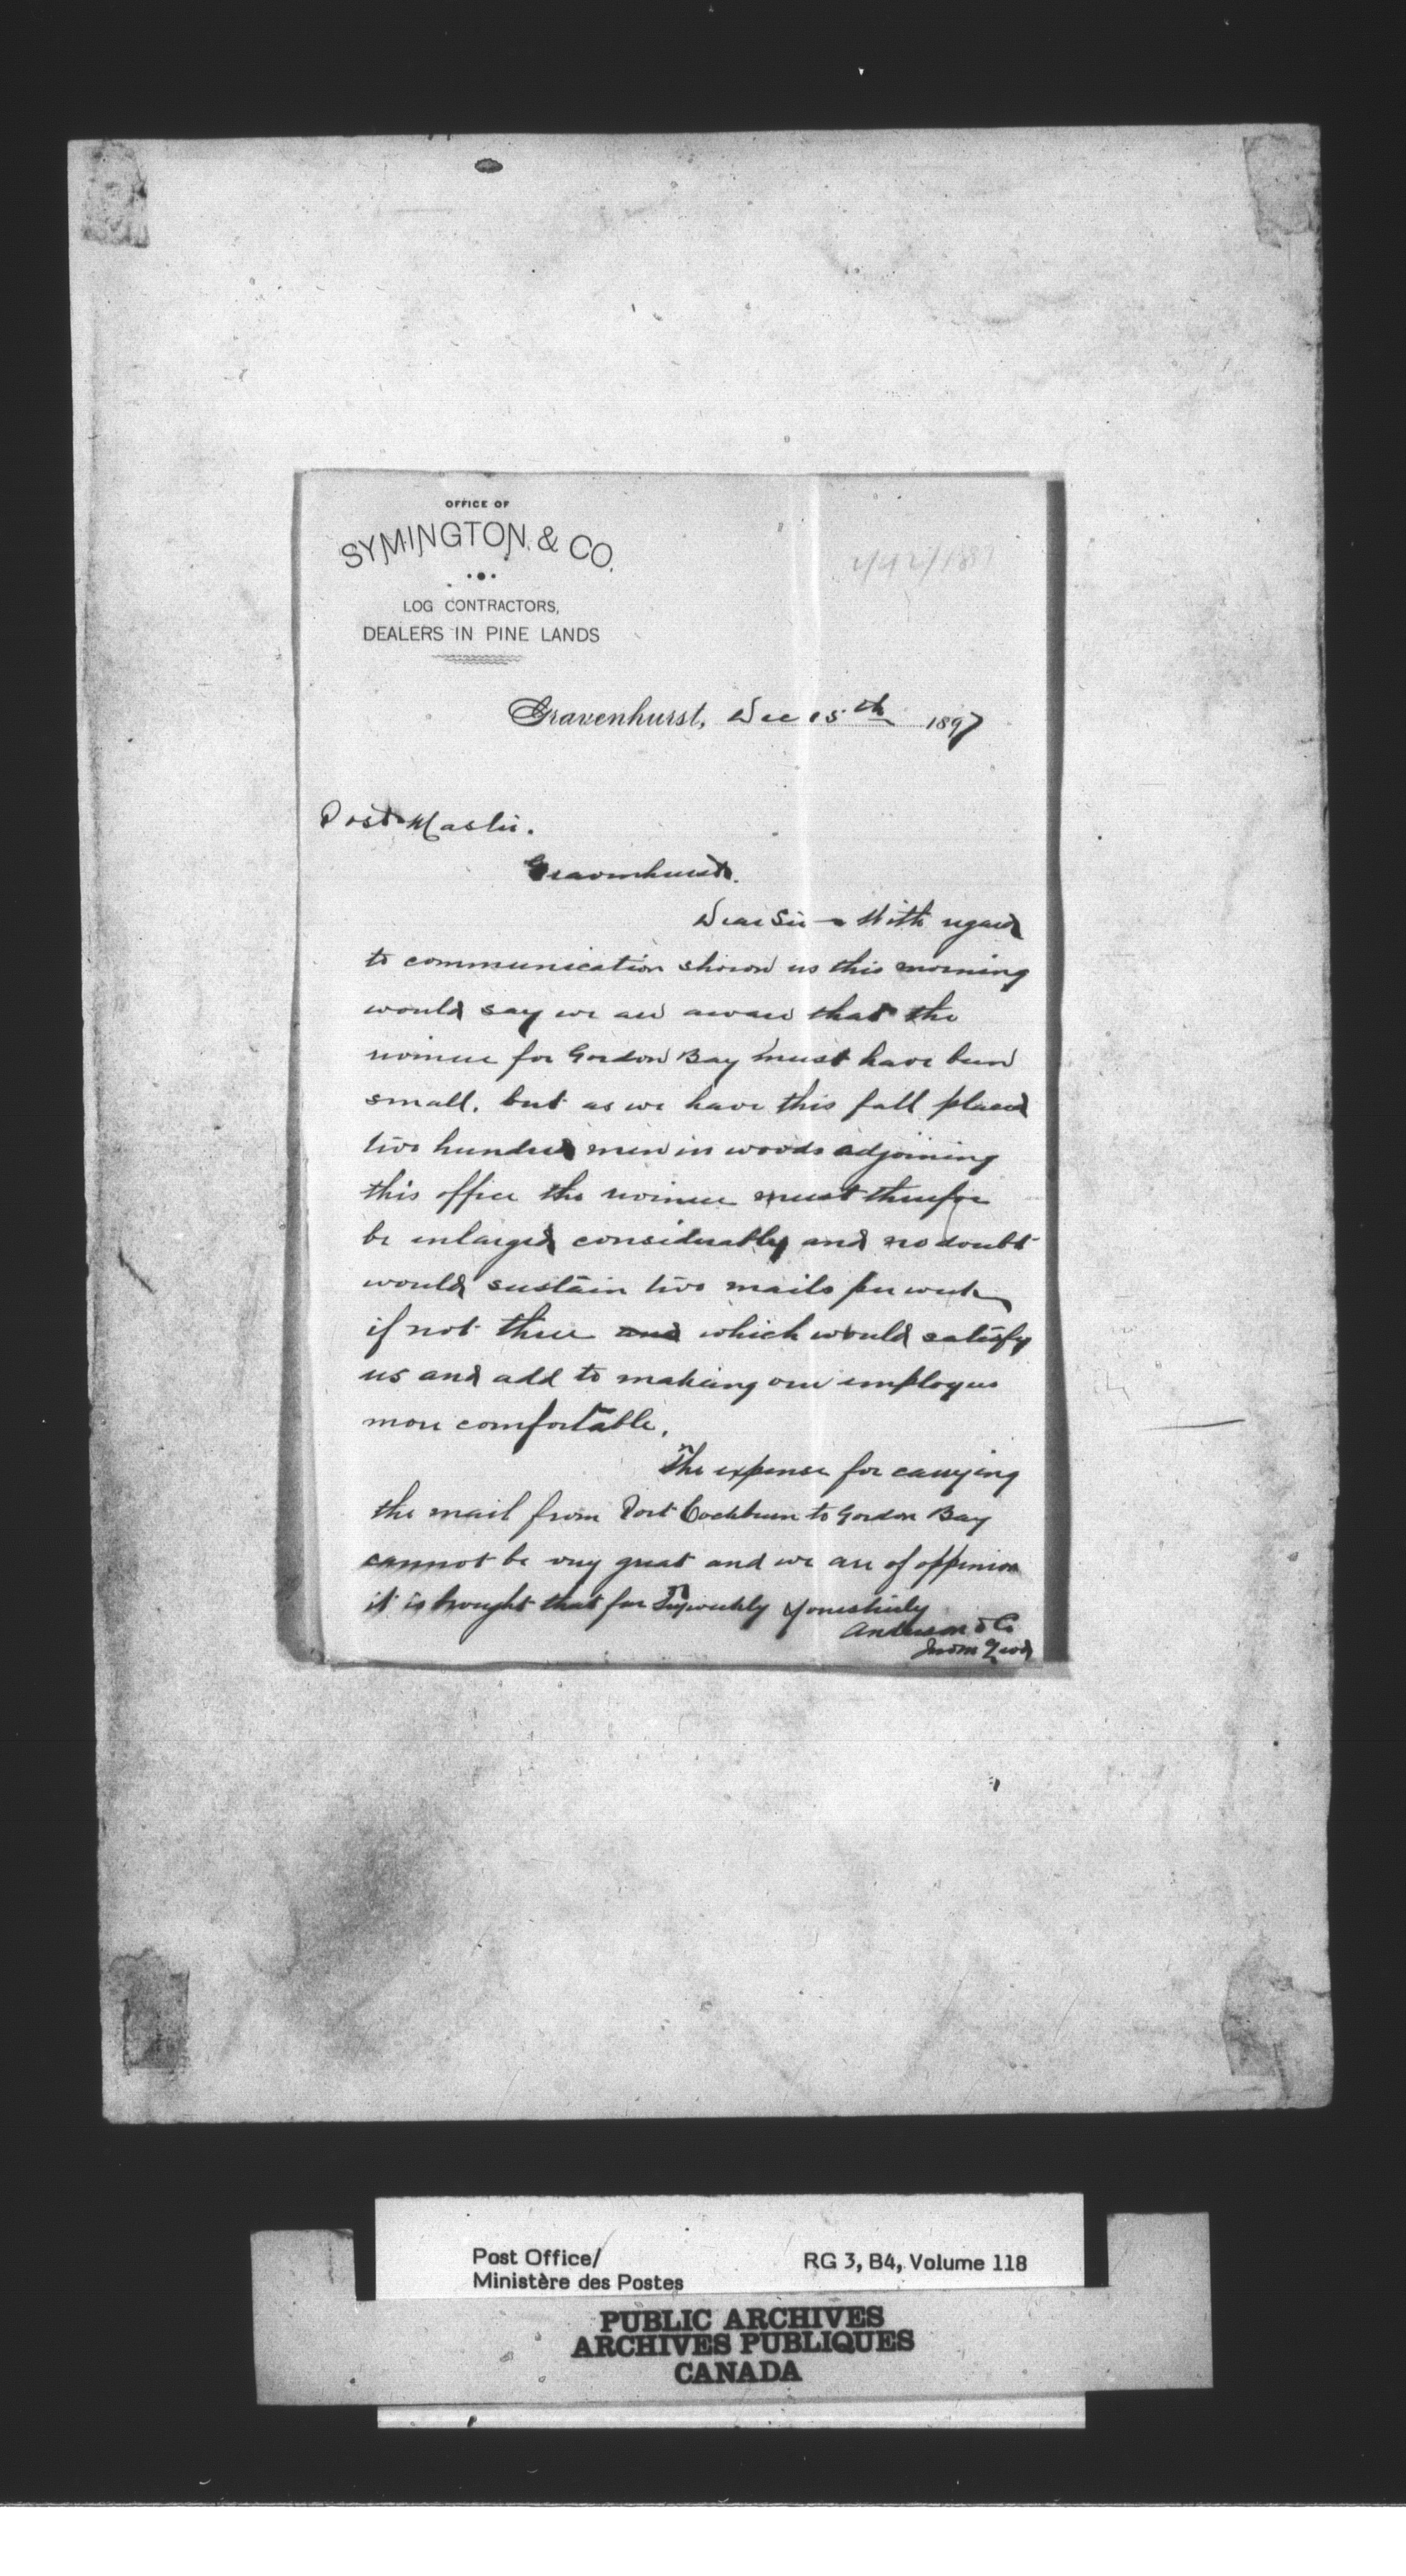 OFFICE OF
SYMINGTON & CO.
LOG CONTRACTORS,
DEALERS IN PINE LANDS
Gravenhurst, Dec 15th 1897
Post Master.
Gravenhurst.
Dear Sir - With regard
to communication shown us this morning
would say we are aware that the
revenue for Gordon Bay must have been
small. but as we have this fall placed
two hundred men in woods adjoining
this office the revenue must therefor
be enlarged considerably and no doubt
would sustain two mails per week
if not three and which would satisfy
us and add to making our employees
more comfortable.
The expense for carrying
the mail from Port Cockburn to Gordon Bay
cannot be very great and we are of oppinion
it is brought that far Tryweekly Yours truly
Anderson & Co
Post Office/
Ministère des Postes
RG 3, B4, Volume 118
PUBLIC ARCHIVES
ARCHIVES PUBLIQUES
CANADA